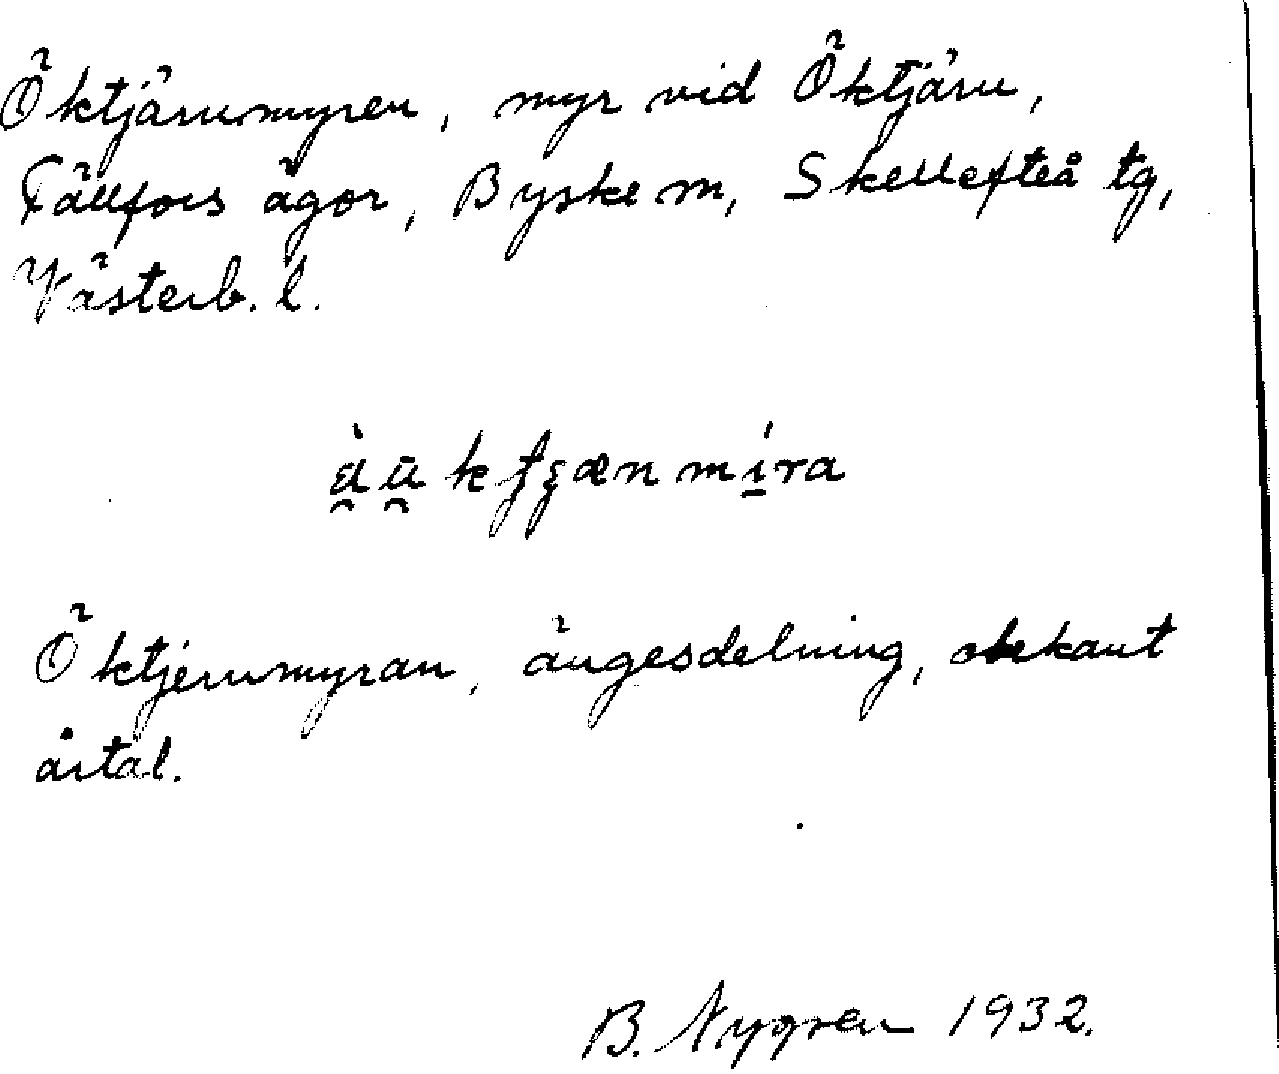 Öktjärnmyren, myr vid Öktjärn,
Fällfors ägor, Byske sn, Skellefteå tg,
Västerb. l.
Öktjernmyran, ängesdelning, obekant
årtal.
B. Nygren 1932.